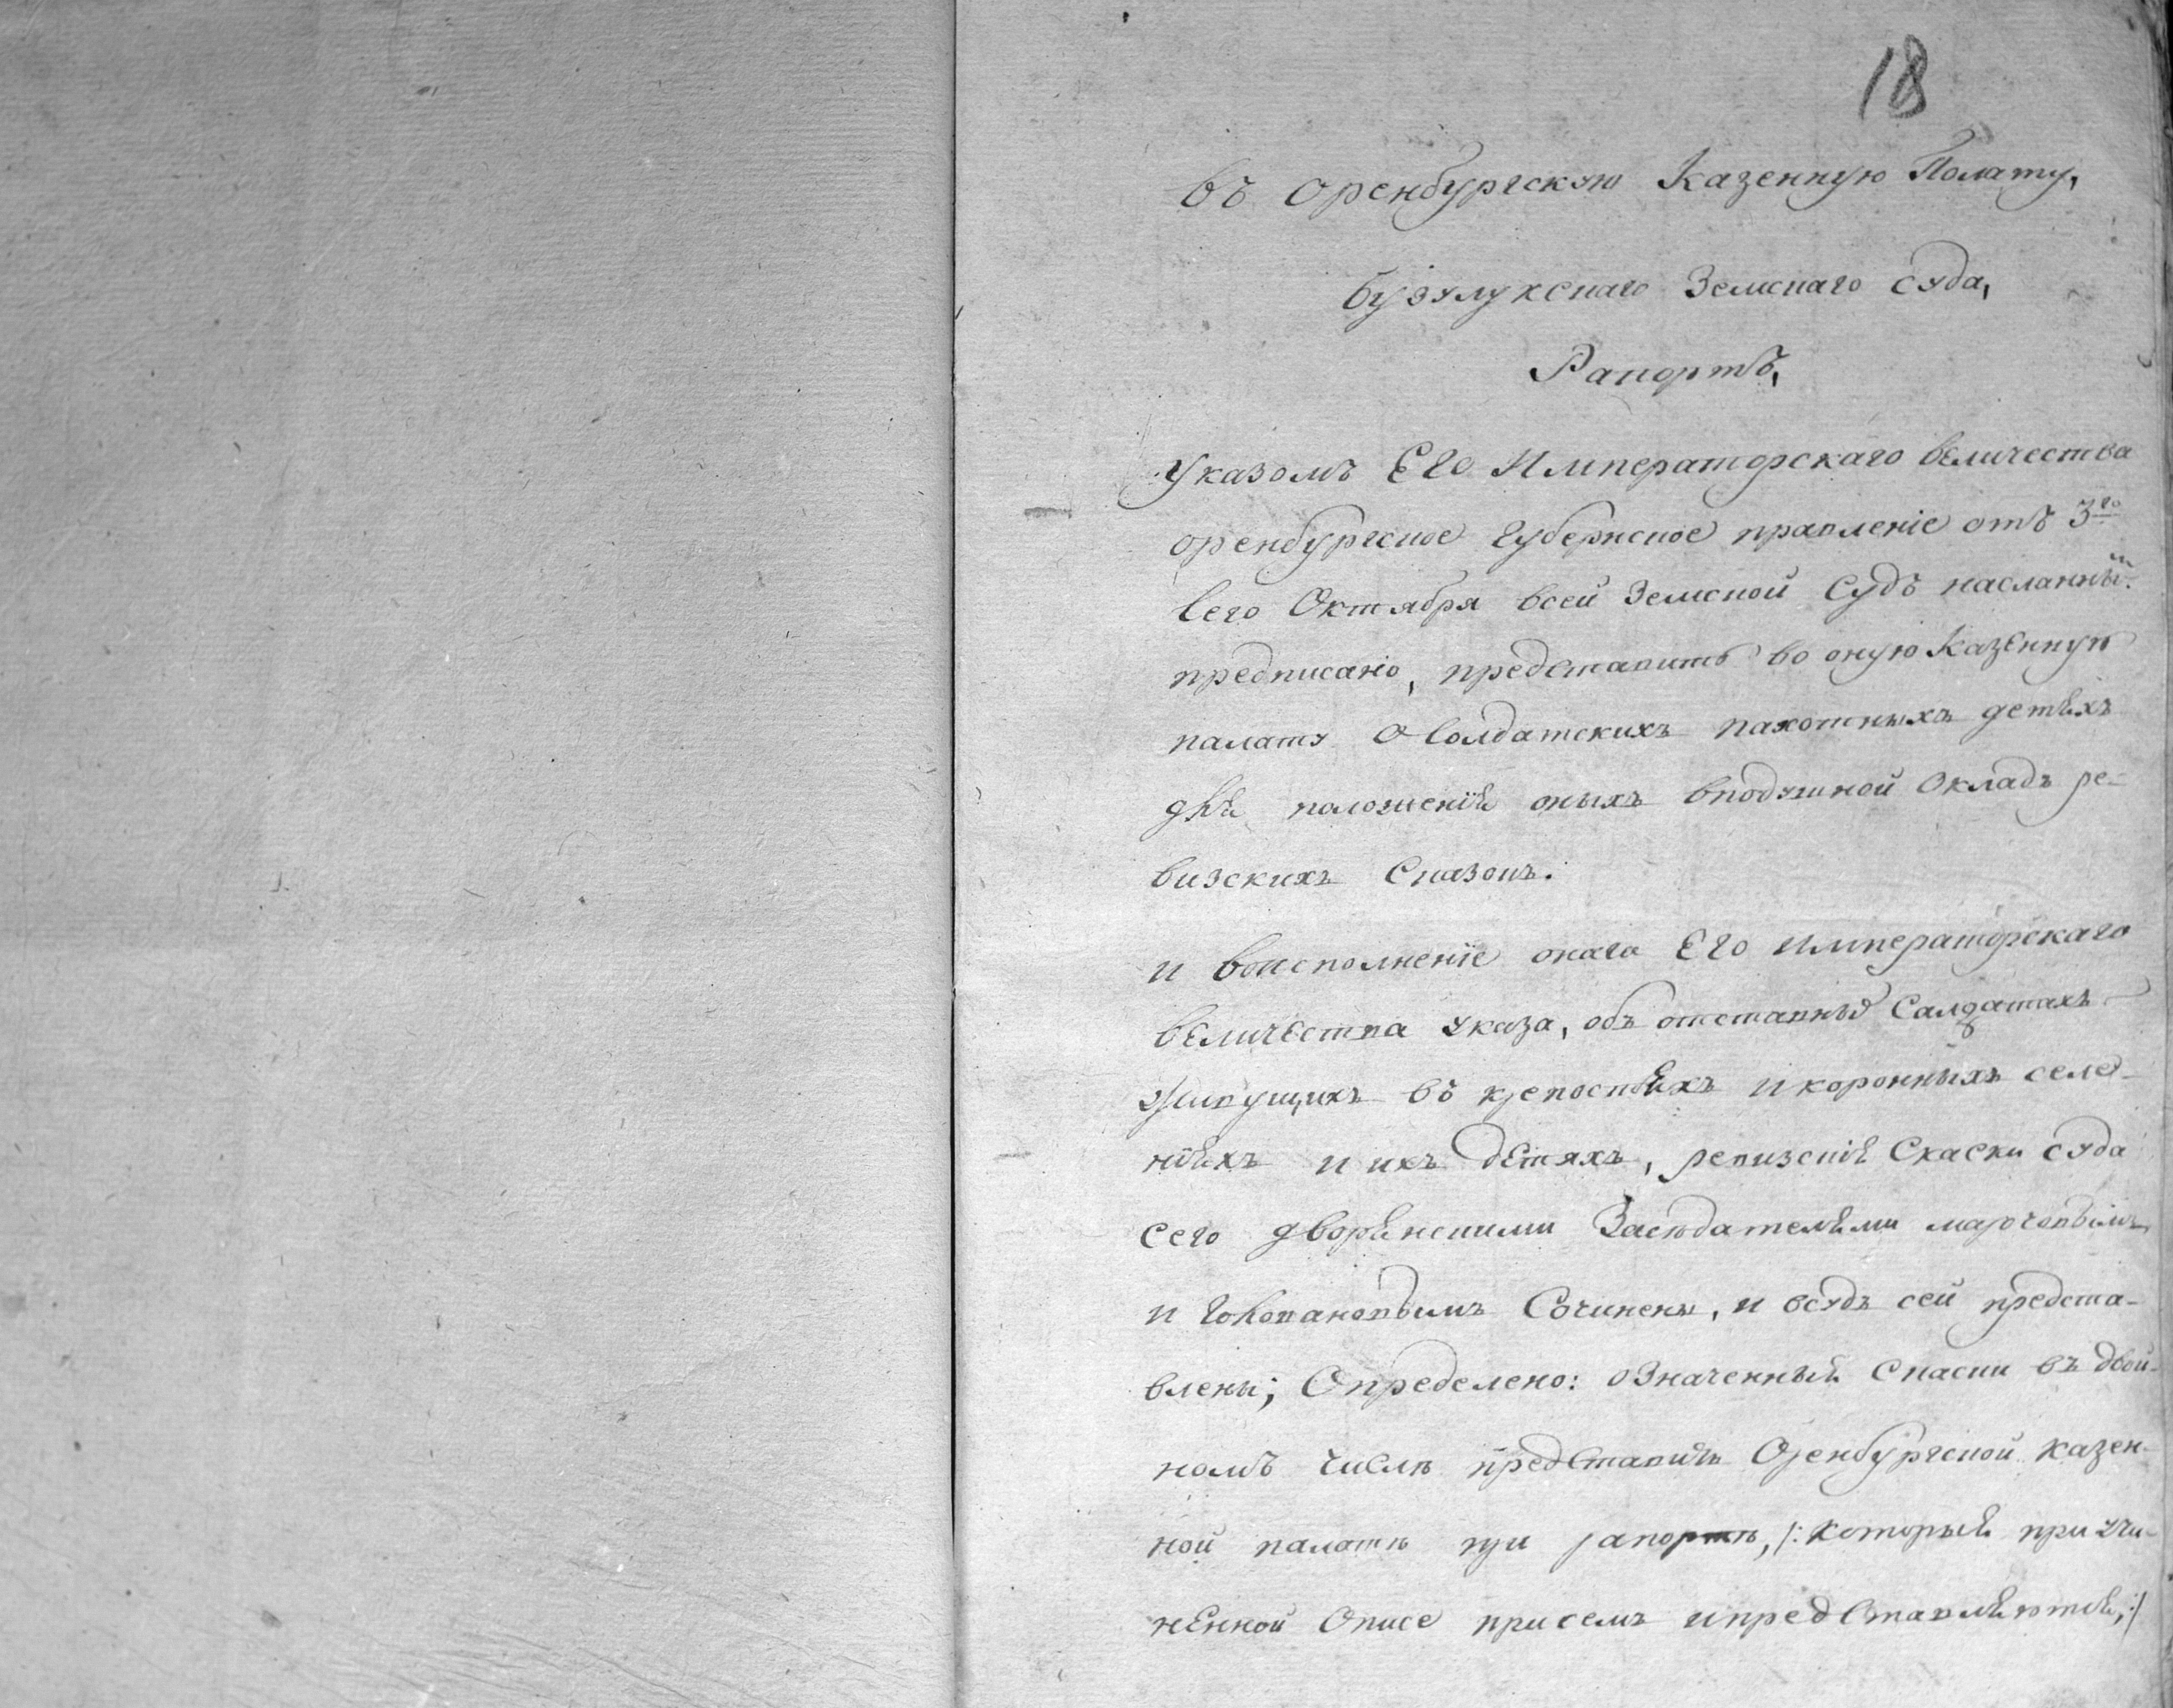 18
въ Оренбургскую Казенную Полату,
бузулукскаго Земскаго суда,
Рапортъ,
Указомъ Его Императорскаго величества
оренбургское губернское правление отъ 3го
сего Октября всей Земской Судъ насланнымъ
предписано, представить во оную Казенную
палату о солдатских пахотныхъ детяхъ
для положения оныхъ вподушной Окладъ ре-
визскихъ Сказокъ.
и воисполнение онаго Его Императорскаго
величества указа, объ отставныхъ Салдатахъ
живущихъ въ крепостяхъ и коронныхъ селе-
нияхъ и ихъ детяхъ, ревизские Скаски суда
сего дворянскими Заседателями
и Сочинены, и всудъ сей предста-
влены; Определено: означенныя Скаски въ двой-
номъ числе представить Оренбургской казен-
ной палате при рапорте, /: которыя при учи-
ненной Описе присемъ ипредставляются, :/